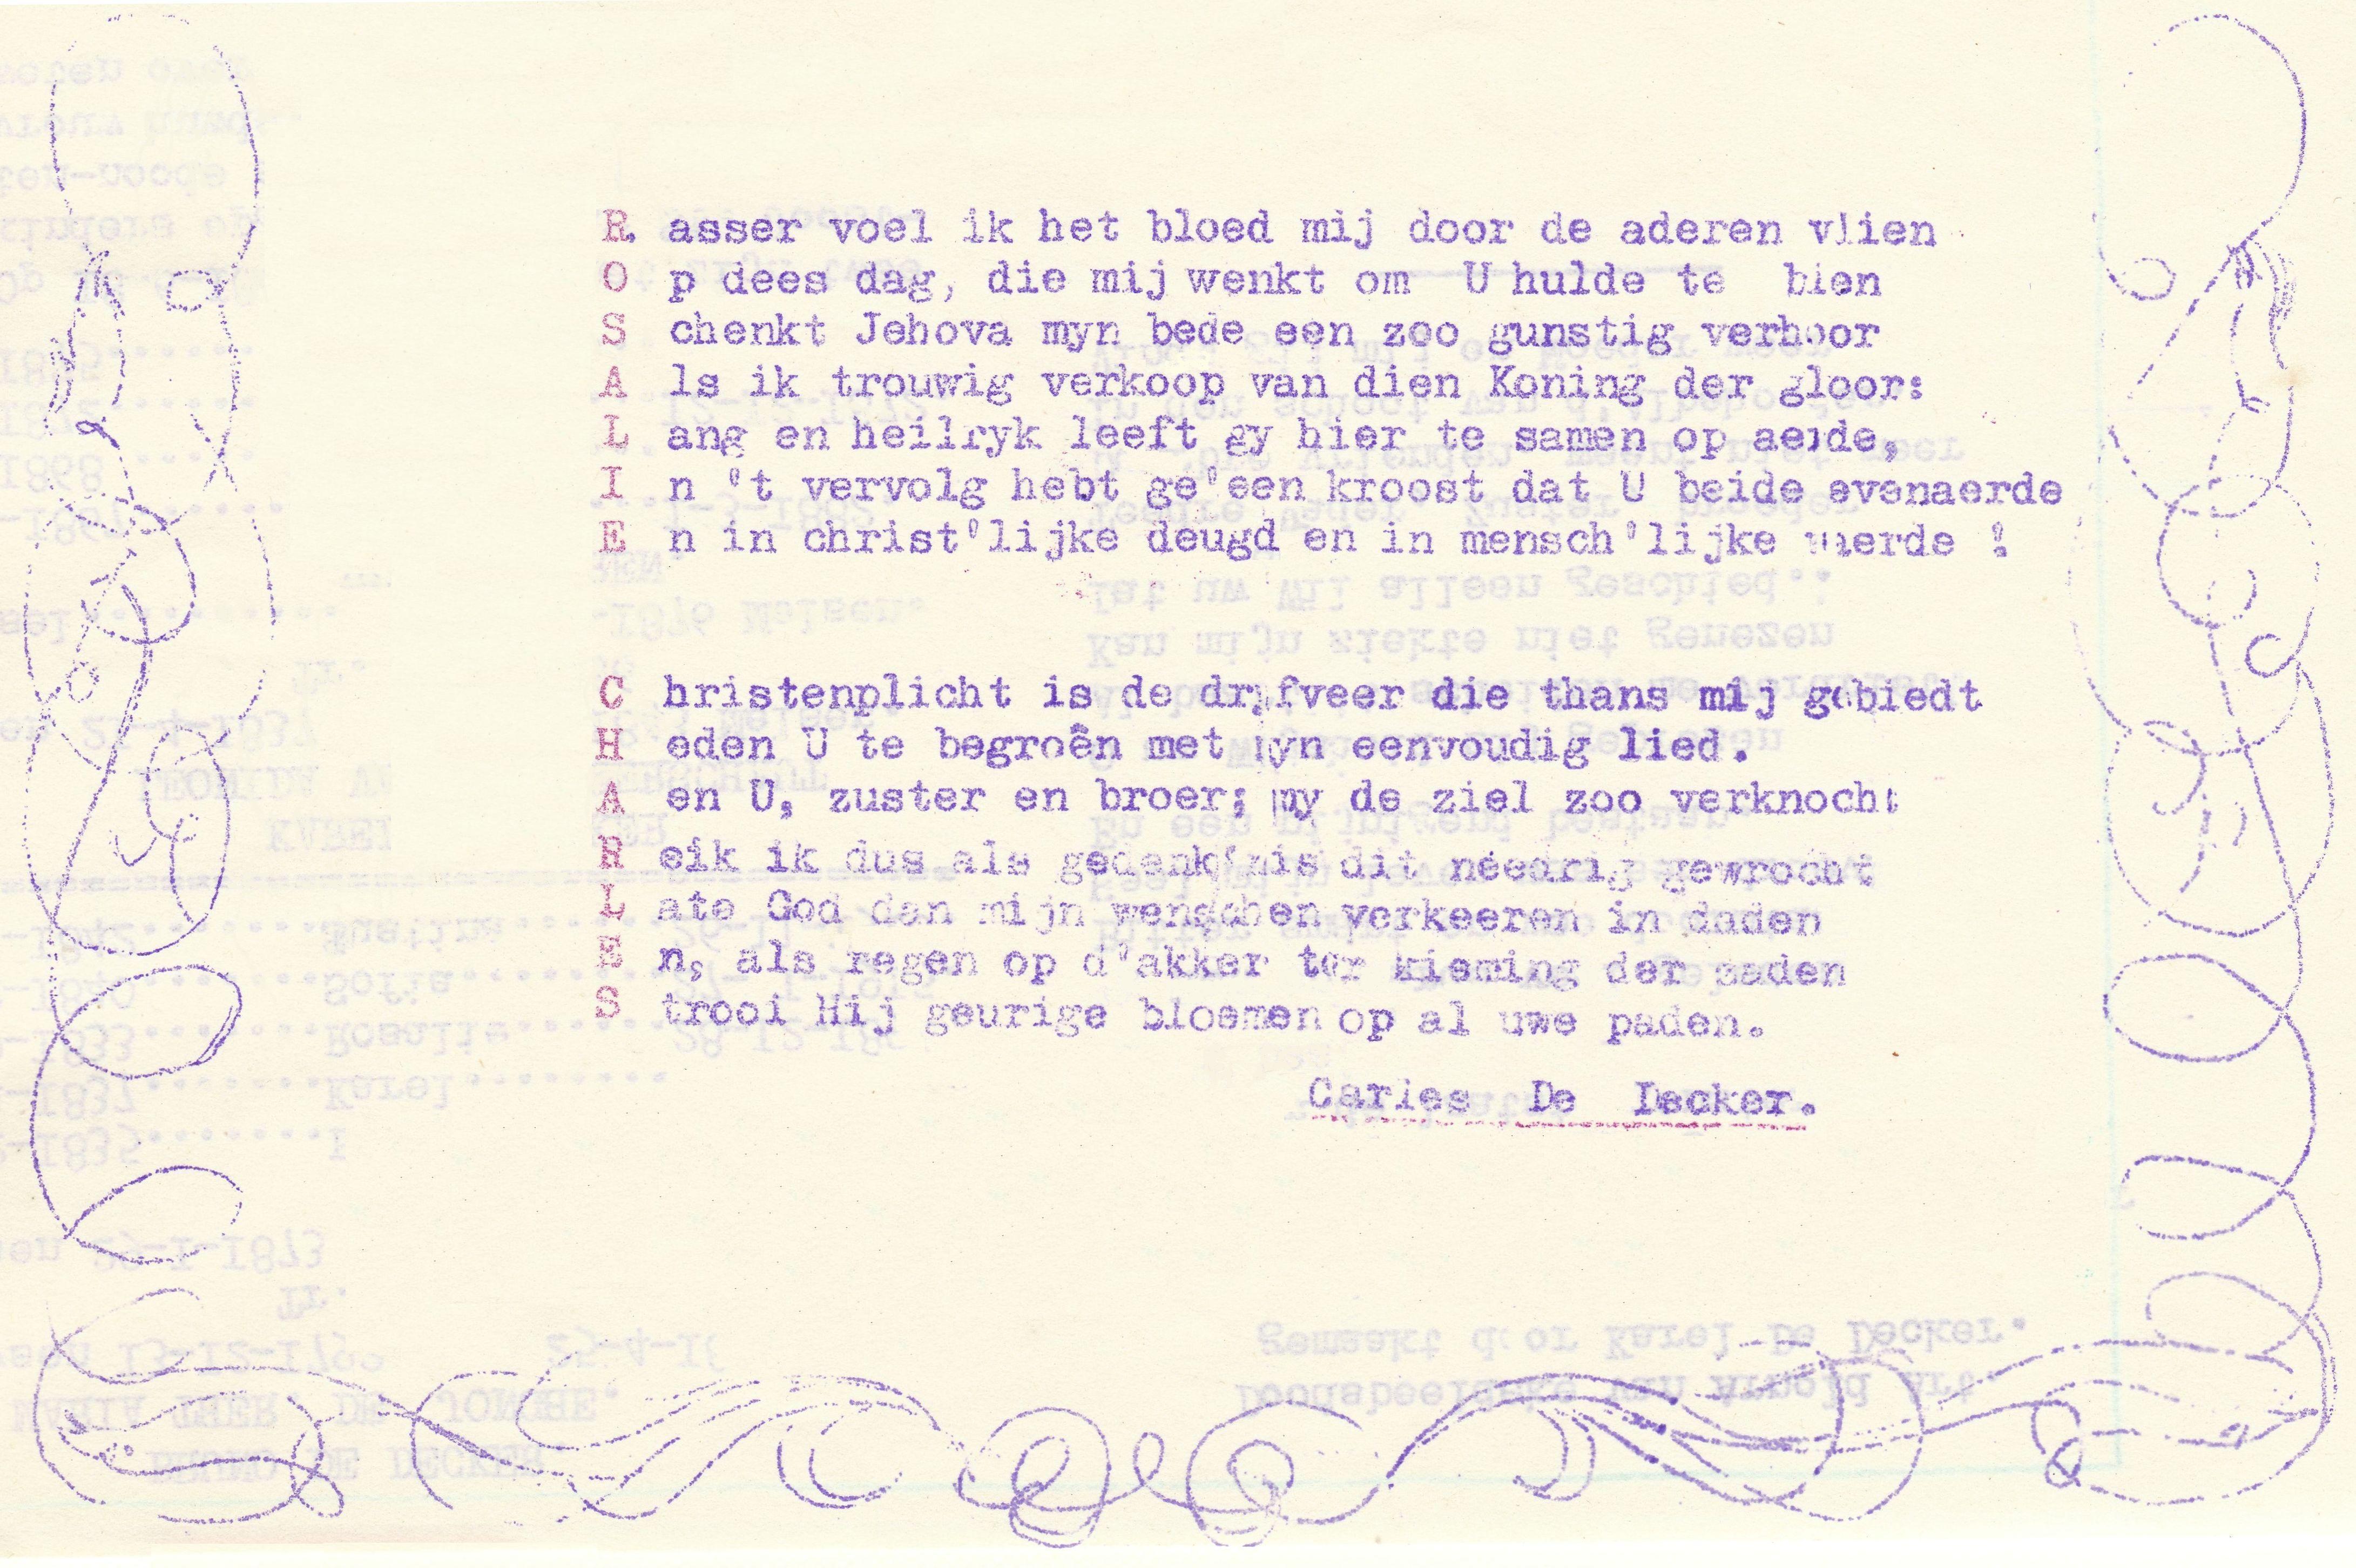 R asser voel ik het bloed mij door de aderen vlien
O p dees dag, die mij wenkt om U hulde te bien
S chenkt Jehova myn bede een zoo gunstig verhoor
A ls ik trouwig verkoop van dien Koning der gloor:
L ang en heilryk leeft gy hier te samen op aerde,
I n 't vervolg hebt ge'een kroost dat U beide evenaerde
E n in christ'lijke deugd en in mensch'lijke waerde !
C hristenplicht is de dryfveer die thans mij gebiedt
H eden U te begroên met myn eenvoudig lied.
A en U, zuster en broer; my de ziel zoo verknocht
R eik ik dus als gedenk'nis dit needrig gewrocht
L ate God dan mijn wenschen verkeeren in daden
E n, als regen op d'akker ter kieming der zaden
S trooi Hij geurige bloemen op al uwe paden.
Carles De Decker.